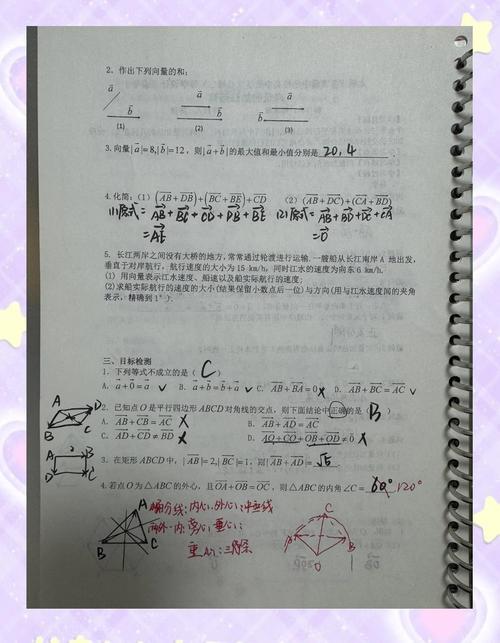 2、作出下列向量的和:
a b
(1)
a b
(2)
a b
(3)
3. 向量|a|=8,|b|=12，则|a+b|的最大值和最小值分别是 20,4.
4. 化简: (1) (AB+DB)+(BC+BE)+CD (2) (AB+DC)+(CA+BD)
(1)原式=AB+BC+CD+DB+BE (2)原式=AB+BD+DC+CA
=AE =0
5. 长江两岸之间没有大桥的地方,常常通过轮渡进行运输.一般船从长江南岸A地出发,
垂直于对岸航行,航行速度的大小为15 km/h,同时江水的速度为向东6 km/h.
(1) 用向量表示江水速度、船速以及船实际航行的速度;
(2)求船实际航行的速度的大小(结果保留小数点后一位)与方向(用与江水速度间的夹角
表示，精确到1°).
三、目标检测
1. 下列等式不成立的是( C )
A. a+0=a ✓ B. a+b=b+a ✓ C. AB+BA=0 x D. AB+BC=AC ✓
2. 已知点O是平行四边形ABCD对角线的交点，则下面结论中正确的是( B )
A. AB+CB=AC X B. AB+AD=AC
C. AD+CD≠BD X D. AO+CO+OB+OD≠0 X
A D B C
A B D C
3. 在矩形ABCD中，|AB|=2,|BC|=1，则|AB+AD|= √5
4. 若点O为△ABC的外心，且OA+OB=OC，则△ABC的内角∠C= 60° 120°
内心
外心
中垂线
垂心
A B C
A C B O